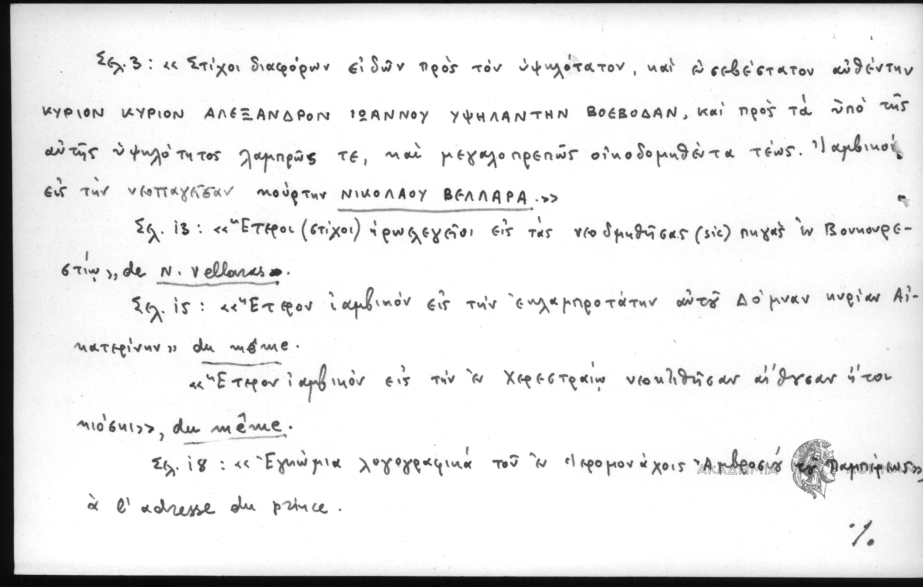 Σελ. 3 : « Στίχοι διαφόρων εἰδῶν πρὸς τὸν ὑψηλότατον, καὶ εὐσεβέστατον αὐθέντην
ΚΥΡΙΟΝ ΚΥΡΙΟΝ ΑΛΕΞΑΝΔΡΟΝ ΙΩΑΝΝΟΥ ΥΨΗΛΑΝΤΗΝ ΒΟΕΒΟΔΑΝ, καὶ πρὸς τὰ ὑπὸ τῆς
αὐτῆς ὑψηλότητος λαμπρῶς τε, καὶ μεγαλοπρεπῶς οἰκοδομηθέντα τέως. Ἰαμβικοὶ
εἰς τὴν νεοπαγεῖσαν κούρτην ΝΙΚΟΛΑΟΥ ΒΕΛΛΑΡΑ.»
Σελ. i3 : «Ἕτεροι (στίχοι) ἡρωελεγεῖοι εἰς τὰς νεοδμηθήσας (sic) πηγὰς ἐν Βουκουρε-
στίῳ», de N. Vellaras.
Σελ. i5 : «Ἕτερον ἰαμβικὸν εἰς τὴν ἐκλαμπροτάτην αὐτοῦ Δόμναν κυρίαν Αἰ-
κατερίνην» du même.
«Ἕτερον ἰαμβικὸν εἰς τὴν ἐν Χερεστραίῳ νεοκτιθῆσαν αἴθουσαν ἤτοι
κιόσκι», du même.
Σελ. i8 : «Ἐγκώμια λογογραφικὰ τοῦ ἐν Ἱερομονάχοις Ἀμβροσίου τοῦ Παμπέρεως»,
à l'adresse du prince.
ΑΚΑΔΗΜΙΑ
./.